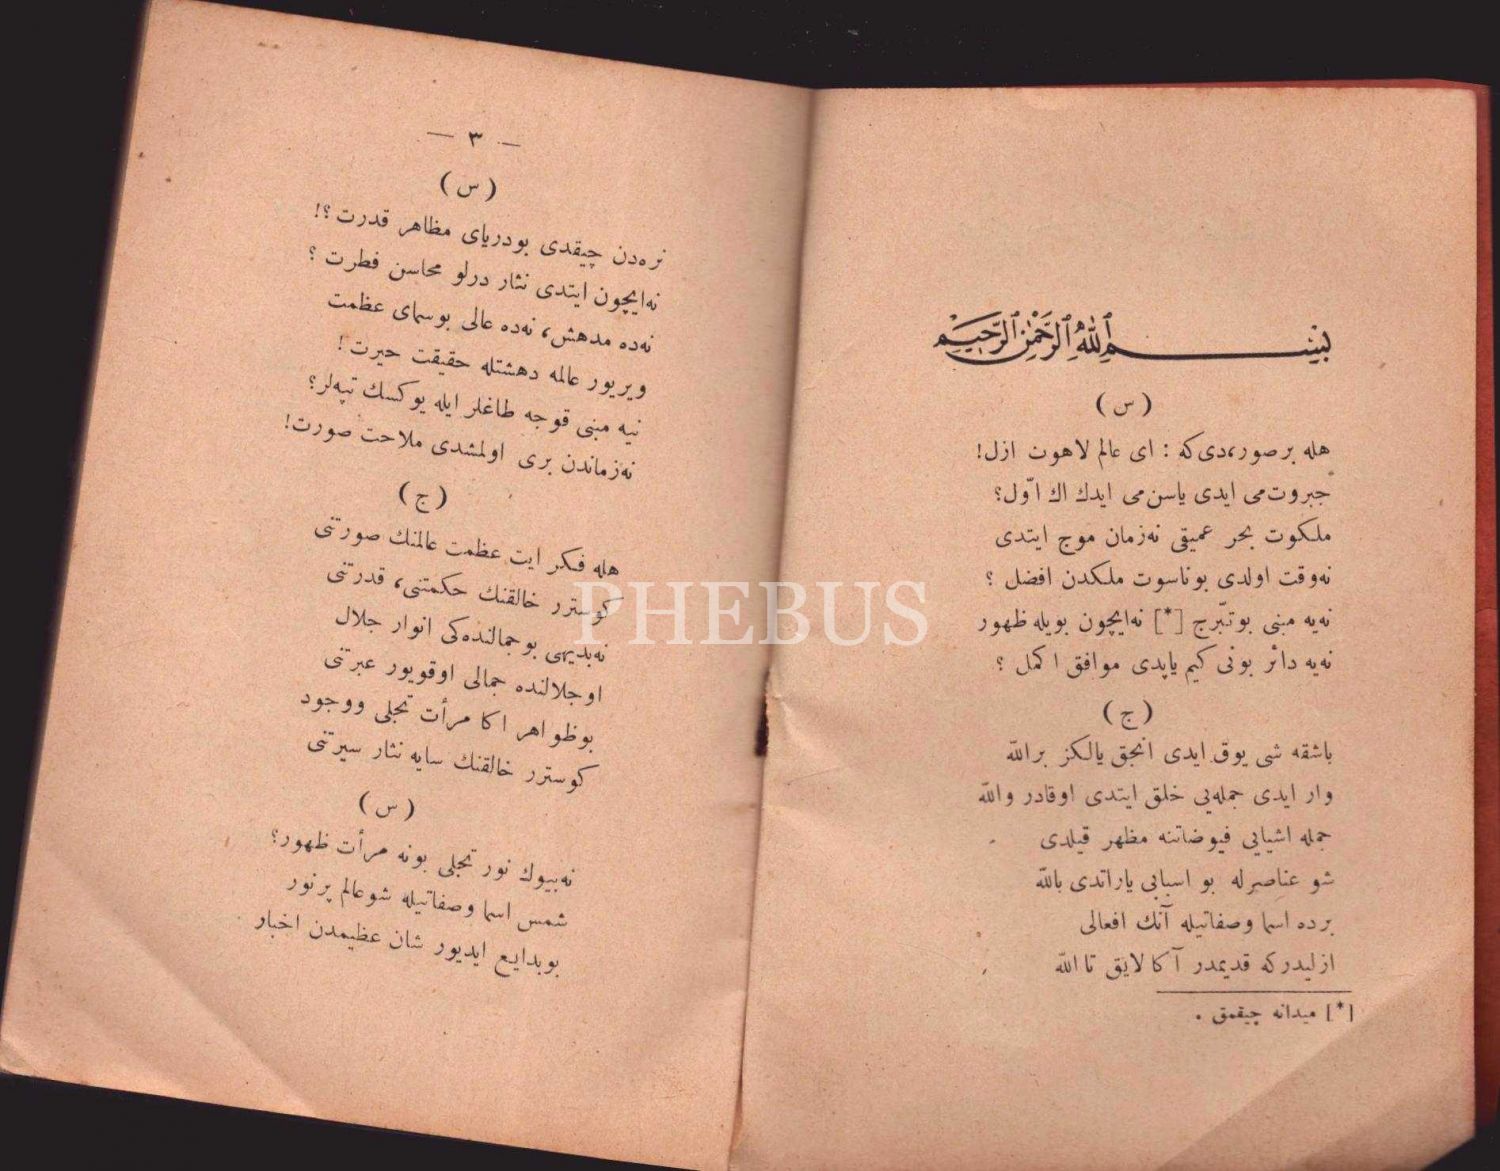 بسم الله الرحمن الرحيم
( س )
هله بر صور، دی که : ای عالم لاهوت ازل!
جبروت‌می ایدی یاسن‌می ایدك اك اوّل؟
ملکوت بحر عمیقی نه‌زمان موج ایتدی
نه‌وقت اولدی بوناسوت ملکدن افضل ؟
نه‌یه مبنی بو تبّرج [*] نه‌ایچون بویله ظهور
نه‌یه دائر بونی کیم یاپدی موافق اکمل ؟
( ج )
باشقه شی یوق ایدی انجق یالکز بر الله
وار ایدی جمله‌یی خلق ایتدی اوقادر والله
جمله اشیایی فیوضاتنه مظهر قیلدی
شو عناصرله بو اسبابی یاراتدی بالله
برده اسما وصفاتیله آنك افعالی
ازلیدرکه قدیمدر آکا لایق تا الله
[*] میدانه چیقمق .
— ٣ —
( س )
نره‌دن چیقدی بودریای مظاهر قدرت ؟!
نه‌ایچون ایتدی نثار درلو محاسن فطرت ؟
نه‌ده مدهش، نه‌ده عالی بوسمای عظمت
ویریور عالمه دهشتله حقیقت حیرت !
نیه مبنی قوجه طاغلر ایله یوکسك تپه‌لر؟
نه‌زماندن بری اولمشدی ملاحت صورت!
( ج )
هله فکر ایت عظمت عالمنك صورتنی
کوسترر خالقنك حکمتنی، قدرتنی
نه‌بدیهی بوجمالنده‌کی انوار جلال
اوجلالنده جمالی اوقویور عبرتنی
بوظواهر اکا مرأت تجلی ووجود
کوسترر خالقنك سایه نثار سیرتنی
( س )
نه‌بیوك نور تجلی بونه مرأت ظهور؟
شمس اسما وصفاتیله شوعالم پرنور
بوبدایع ایدیور شان عظیمدن اخبار
PHEBUS